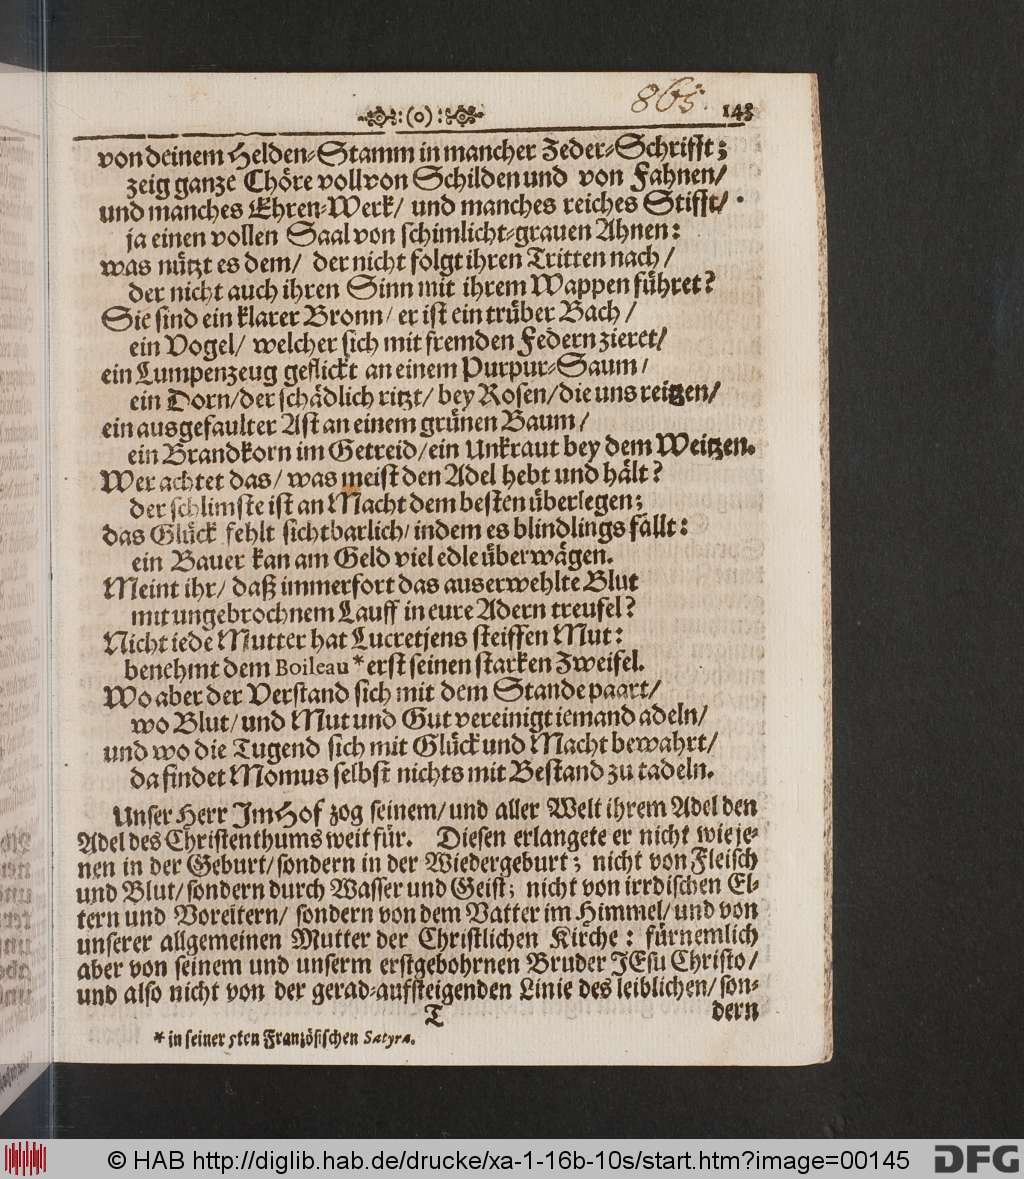 :(o): 865. 143
von deinem Helden-Stamm in mancher Zeder-Schrifft;
zeig ganze Chöre voll von Schilden und von Fahnen/
und manches Ehren-Werk/ und manches reiches Stifft/
ja einen vollen Saal von schimlicht-grauen Ahnen:
was nützt es dem/ der nicht folgt ihren Tritten nach/
der nicht auch ihren Sinn mit ihrem Wappen führet?
Sie sind ein klarer Bronn/ er ist ein trüber Bach/
ein Vogel/ welcher sich mit fremden Federn zieret/
ein Lumpenzeug geflickt an einem Purpur-Saum/
ein Dorn/ der schädlich ritzt/ bey Rosen/ die uns reitzen/
ein ausgefaulter Ast an einem grünen Baum/
ein Brandkorn im Getreid/ ein Unkraut bey dem Weitzen.
Wer achtet das/ was meist den Adel hebt und hält?
der schlimste ist an Macht dem besten überlegen;
das Glück fehlt sichtbarlich/ indem es blindlings fällt:
ein Bauer kan am Geld viel edle überwägen.
Meint ihr/ daß immerfort das auserwehlte Blut
mit ungebrochnem Lauff in eure Adern treufel?
Nicht iede Mutter hat Lucretjens steiffen Mut:
benehmt dem Boileau * erst seinen starken Zweifel.
Wo aber der Verstand sich mit dem Stande paart/
wo Blut/ und Mut und Gut vereinigt iemand adeln/
und wo die Tugend sich mit Glück und Macht bewahrt/
da findet Momus selbst nichts mit Bestand zu tadeln.
Unser Herr ImHof zog seinem/ und aller Welt ihrem Adel den
Adel des Christenthums weit für. Diesen erlangete er nicht wie je-
nen in der Geburt/ sondern in der Wiedergeburt; nicht von Fleisch
und Blut/ sondern durch Wasser und Geist; nicht von irrdischen El-
tern und Voreltern/ sondern von dem Vatter im Himmel/ und von
unserer allgemeinen Mutter der Christlichen Kirche: fürnemlich
aber von seinem und unserm erstgebohrnen Bruder JEsu Christo/
und also nicht von der gerad-aufsteigenden Linie des leiblichen/ son-
T dern
* in seiner 5ten Französischen Satyra.
© HAB http://diglib.hab.de/drucke/xa-1-16b-10s/start.htm?image=00145 DFG